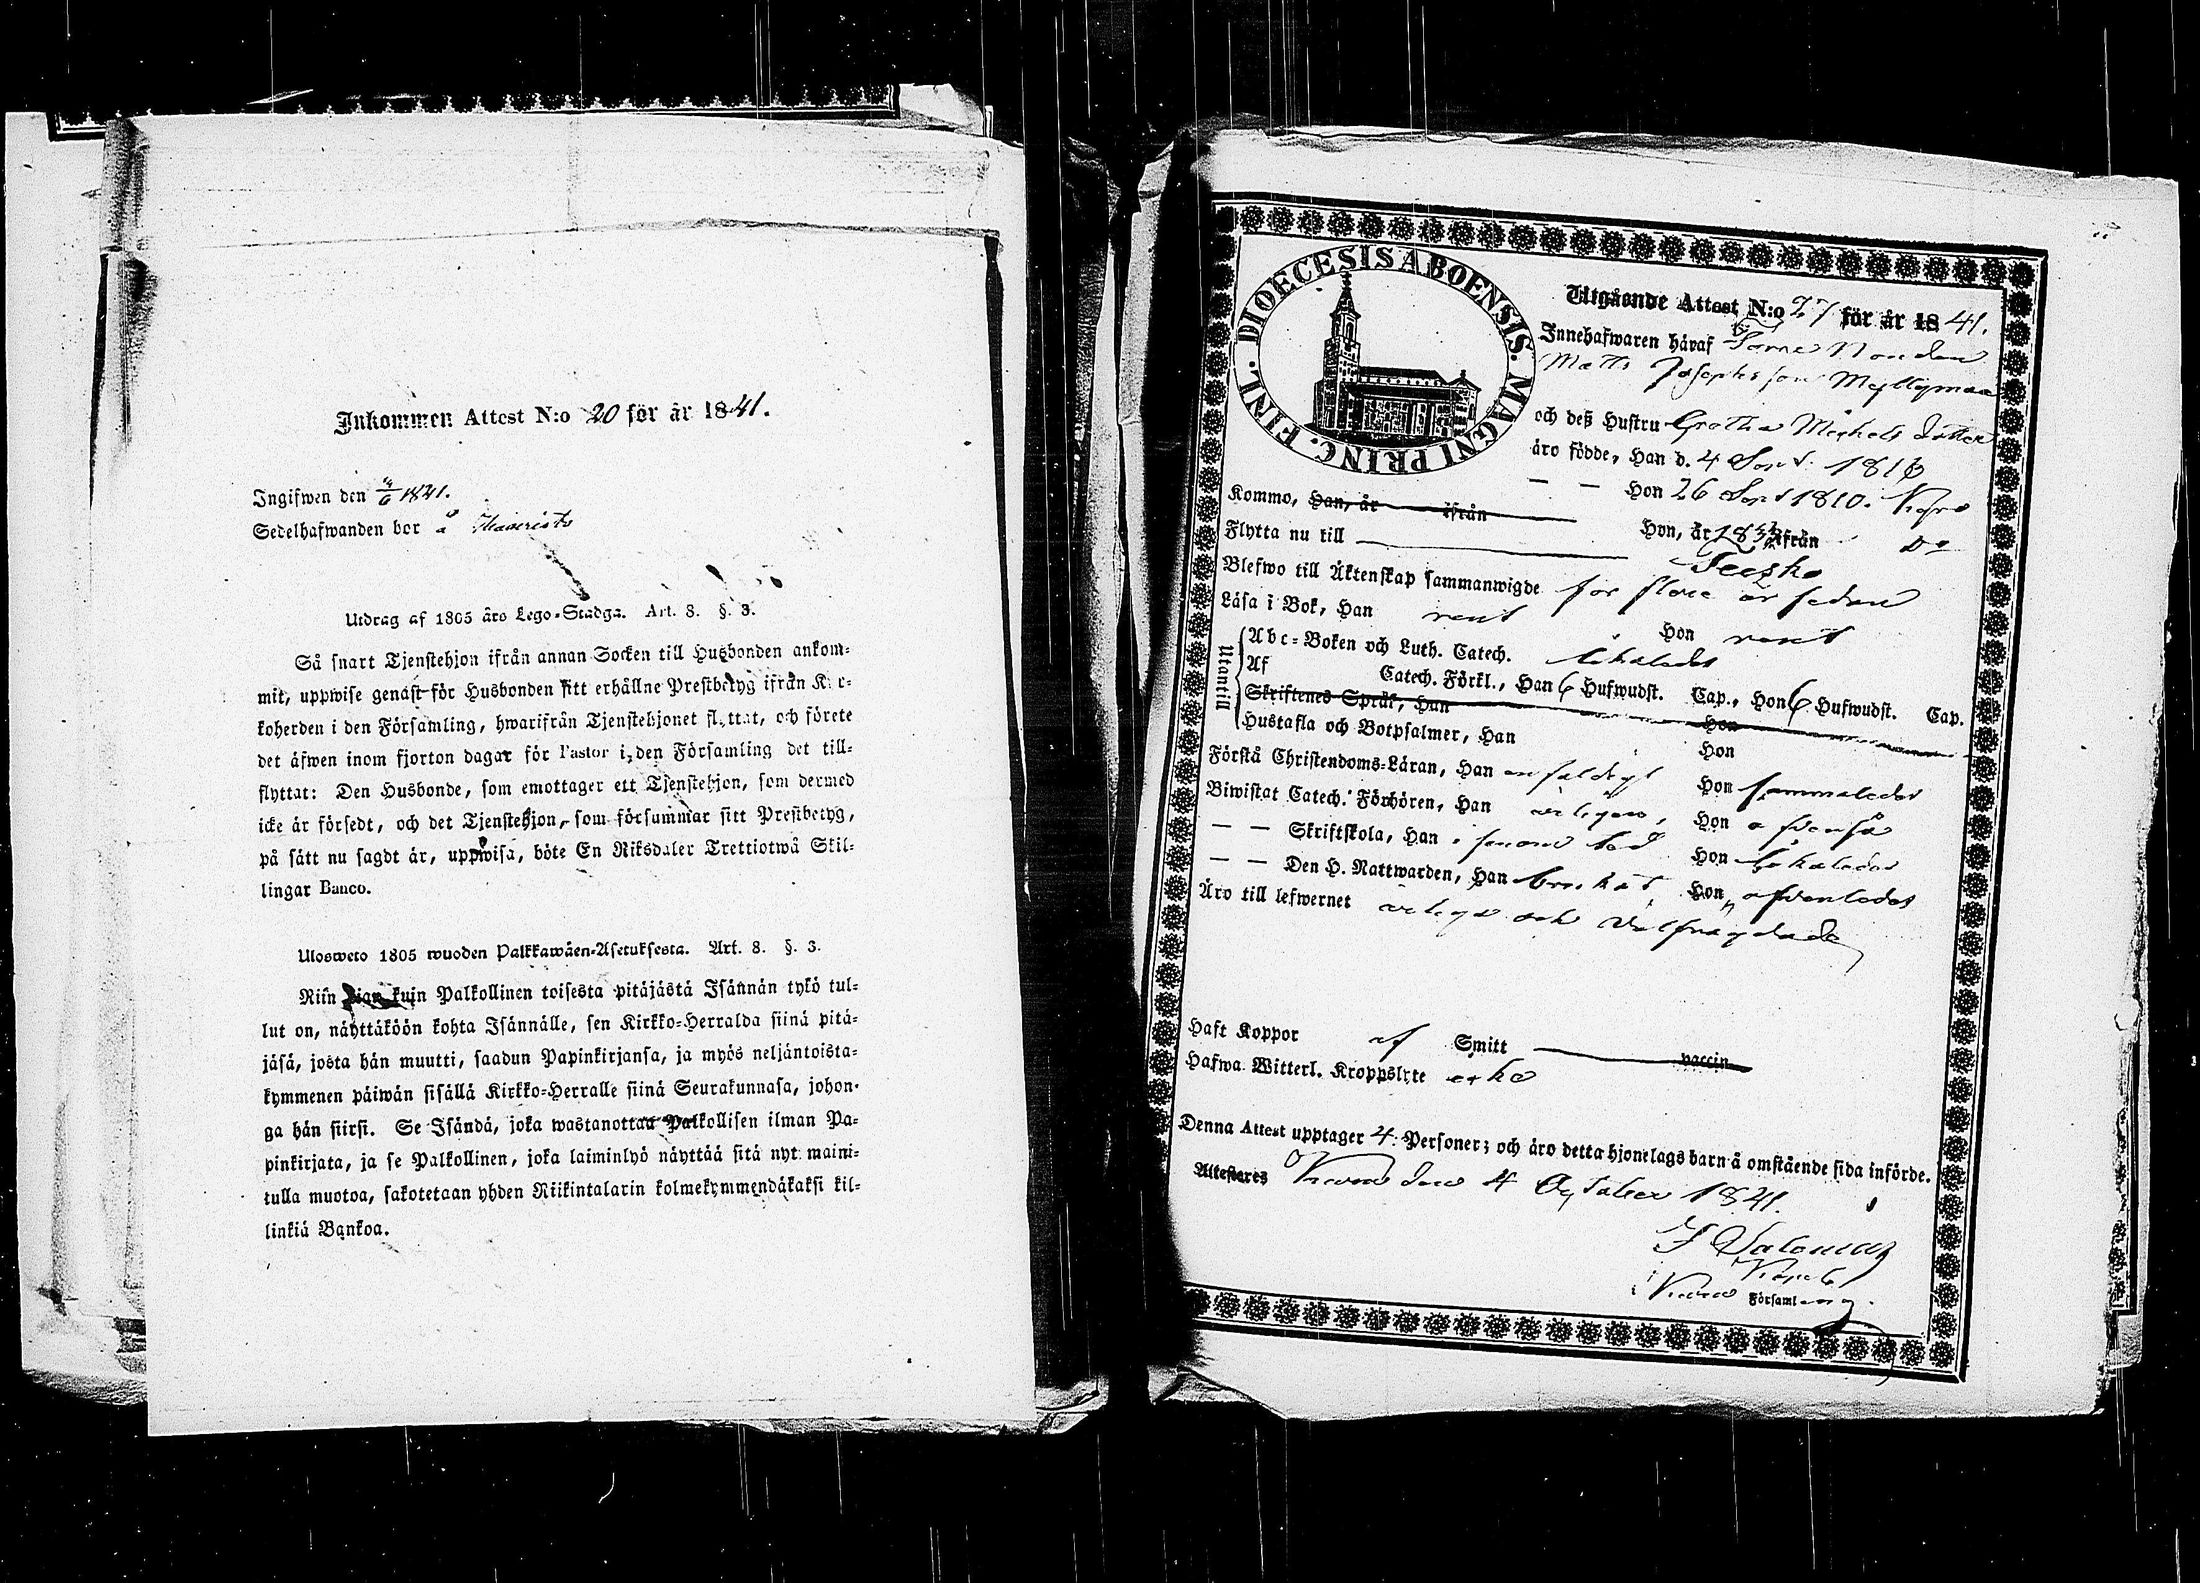 Inkommen Attest N:o 20 för år 1841.
Ingifwen den 1841.
Sedelhafwanden bor å
Utdrag af 1805 års Lego-Stadga. Art. 8. §. 3.
Så snart Tjenstehjon ifrån annan Socken till Husbonden ankom-
mit, uppwise genast för Husbonden sitt erhållne Prestbetyg ifrån Kyr-
koherden i den Församling, hwarifrån Tjenstehjonet flyttat, och förete
det äfwen inom fjorton dagar för Pastor i den Församling det till-
flyttat: Den Husbonde, som emottager ett Tjenstehjon, som dermed
icke är försedt, och det Tjenstehjon, som försummar sitt Prestbetyg,
på sätt nu sagdt är, uppwisa, böte En Riksdaler Trettiotwå Skil-
lingar Banco.
Ulosweto 1805 wuoden Palkkawäen-Asetuksesta. Art. 8. §. 3.
Niin pian kuin Palkollinen toisesta pitäjästä Isännän tykö tul-
lut on, näyttäköön kohta Isännälle, sen Kirkko-Herralda siinä pitä-
jäsä, josta hän muutti, saadun Papinkirjansa, ja myös neljäntoista-
kymmenen päiwän sisällä Kirkko-Herralle siinä Seurakunnasa, johon-
ga hän siirsi. Se Isändä, joka wastanottaa Palkollisen ilman Pa-
pinkirjata, ja se Palkollinen, joka laiminlyö näyttää sitä nyt maini-
tulla muotoa, sakotetaan yhden Riikintalarin kolmekymmendäkaksi kil-
linkiä Bankoa.
DIOECESIS ABOENSIS. MAGNI PRINC. FINL.
Utgående Attest N:o 27 för år 1841.
Innehafwaren häraf
Matts Josephsson Myllymaa
och deß Hustru Gretha Michels dotter
äro födde, Han d. 4 Sept. 181
— — Hon 26 Sept 1810. Kyro
Kommo, Han, år ifrån Hon, år 18 ifrån Do
Flytta nu till
Blefwo till Äktenskap sammanwigde för flere år sedan
Läsa i Bok, Han rent Hon rent
Utantill
Abc-Boken och Luth. Catech. likaledes
Af Catech. Förkl., Han 6 Hufwudst. Cap., Hon 6 Hufwudst. Cap.
Skriftenes Språk, Han Hon
Hustafla och Botpsalmer, Han Hon
Förstå Christendoms-Läran, Han enfaldigt Hon sammaledes
Biwistat Catech. Förhören, Han årligen, Hon äfvenså
— — Skriftskola, Han i senare tid Hon likaledes
— — Den H. Nattwarden, Han brukat Hon äfvenledes
Äro till lefwernet ärliga och välfrägdade
Haft Koppor af Smitt vaccin
Hafwa Witterl. Kroppslyte icke
Denna Attest upptager 4 Personer; och äro detta hjonelags barn å omstående sida införde.
Attesteres den 4 October 1841.
i Församling.